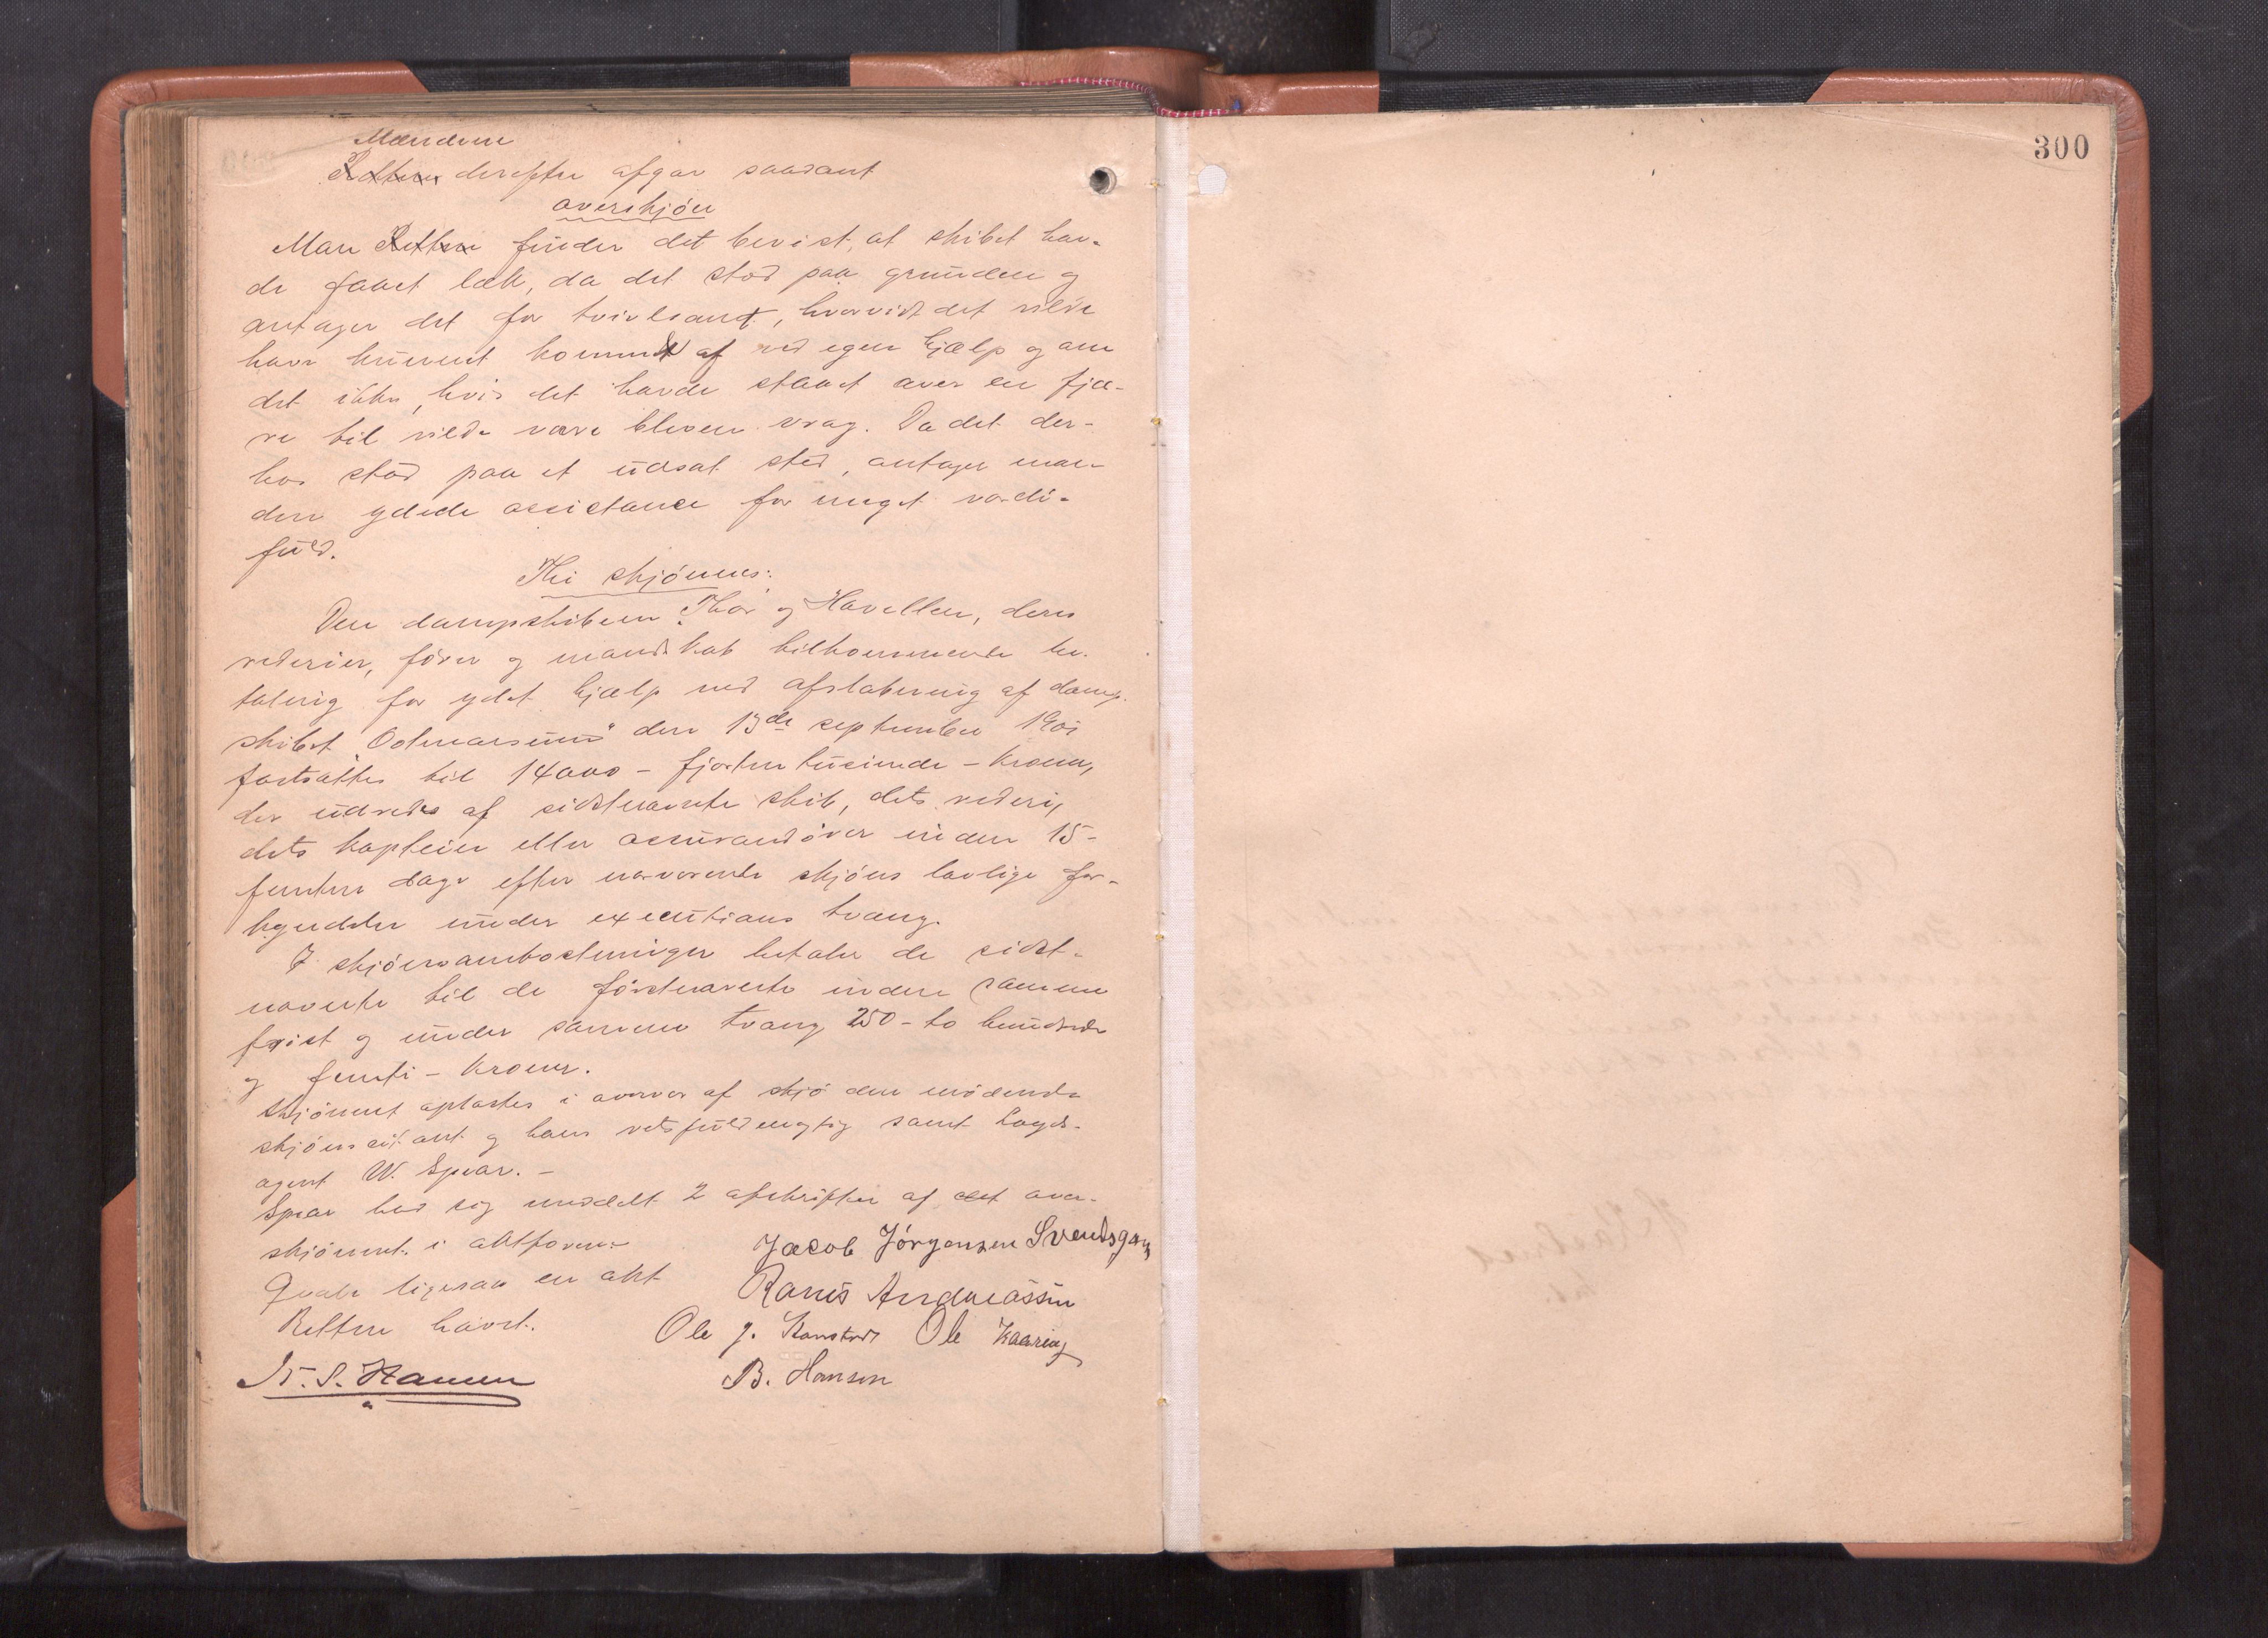 Mændene
Retten derefter afgav saadant
overskjön
Man Retten finder det bevist, at skibet hav-
de faaet læk, da det stod paa grunden og
antager det for tvivlsomt, hvorvidt det vilde
have kunnet kommet af ved egen hjælp og om
det ikke, hvis det havde staaet over en fjæ-
re til vilde være bleven vrag. Da det der-
hos stod paa et udsat sted, antager man
den ydede assistance for meget værdi-
fuld.
Thi skjönnes:
Den dampskibene "Thor og Havellen, deres
rederier, förer og mandskab tilkommende be-
taling for ydet hjælp ved afslæbning af damp-
skibet "Ootmarsum" den 13de september 1901
fastsættes til 14000 - fjorten tusinde - kroner,
der udredes af sidstnævnte skib, dets rederi,
dets kaptein eller assurandörer inden 15-
femten dage efter nærværende skjöns lovlige for-
kyndelse under executions tvang.
I skjönsomkostninger betaler de sidst-
nævnte til de förstnævnte inden samme
frist og under samme tvang 250 - to hundrede
og femti - kroner.
Skjönnet oplæstes i overvær af skjö den mödende
skjönscitant og hans retsfuldmægtig samt Loyds-
agent W. Spear. -
Spear bad sig meddelt 2 afskrifter af det over-
skjönnet i aktform.
ligesaa en akt
Retten hævet.
Jacob Jörgensen Svendsgam
Andreassen
Ole J. Ole Kaaring
B. Hansen
300